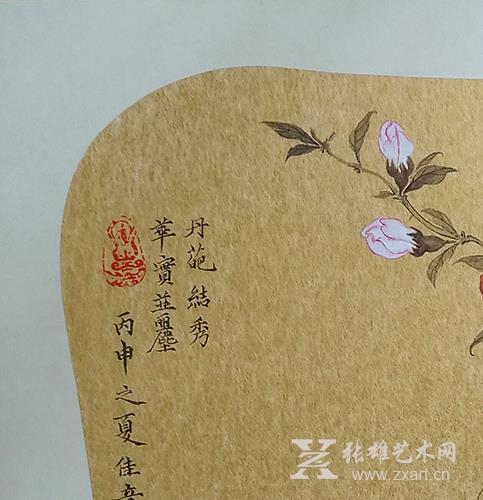 丹葩結秀
華實並麗
丙申之夏佳
张雄艺术网
www.zxart.cn